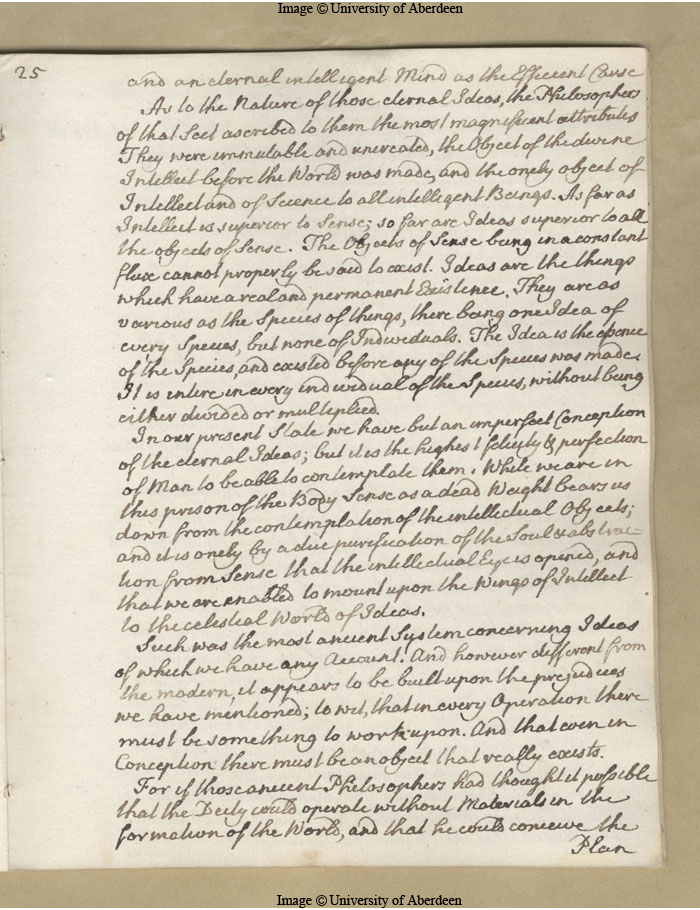 Image © University of Aberdeen
25
and an eternal intelligent Mind as the Efficient Cause
As to the Nature of those eternal Ideas, the Philosophers
of that Sect ascribed to them the most magnificent attributes
They were immutable and uncreated, the Object of the divine
Intellect before the World was made, and the onely object of
Intellect and of Science to all intelligent Beings. As far as
Intellect is superior to Sense; so far are Ideas superior to all
the objects of Sense. The Objects of Sense being in a constant
flux cannot properly be said to exist. Ideas are the things
which have a real and permanent Existence. They are as
various as the Species of things, there being one Idea of
every Species, but none of Individuals. The Idea is the essence
of the Species, and existed before any of the Species was made.
It is entire in every individual of the Species, without being
either divided or multiplied.
In our present State we have but an imperfect Conception
of the eternal Ideas; but it is the highest felicity & perfection
of Man to be able to contemplate them. While we are in
this prison of the Body Sense as a dead Weight bears us
down from the contemplation of the intellectual Objects;
and it is onely by a due purification of the Soul & abstrac=
tion from Sense that the intellectual Eye is opened, and
that we are enabled to mount upon the Wings of Intellect
to the celestial World of Ideas.
Such was the most ancient System concerning Ideas
of which we have any Account. And however different from
the modern, it appears to be built upon the prejudices
we have mentioned; to wit, that in every Operation there
must be something to work upon. And that even in
Conception there must be an object that really exists.
For if those ancient Philosophers had thought it possible
that the Deity could operate without Materials in the
formation of the World, and that he could conceive the
Plan
Image © University of Aberdeen